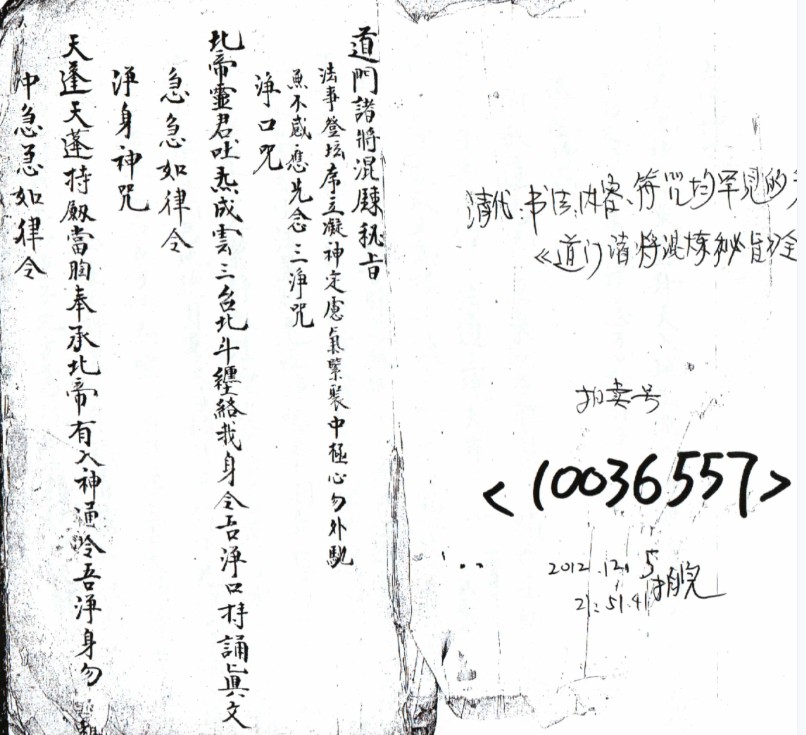 道門諸將混願秘旨
法事登坛席立凝神定慮氣擊聚中極心勿外馳
魚不感應先念三淨咒
淨口咒
北帝靈君吐炁成雲三台北斗纒絡我身令吾淨口持誦真文
急急如律令
淨身神咒
天蓬天蓬持劔當胸奉承北帝有入神通吟吾淨身勿
冲急急如律令
清代.书法、内容、符咒均罕见的
《道门诸将混炼秘旨》全
拍卖号
<10036557>
2012.12.5
21:51.41拍完